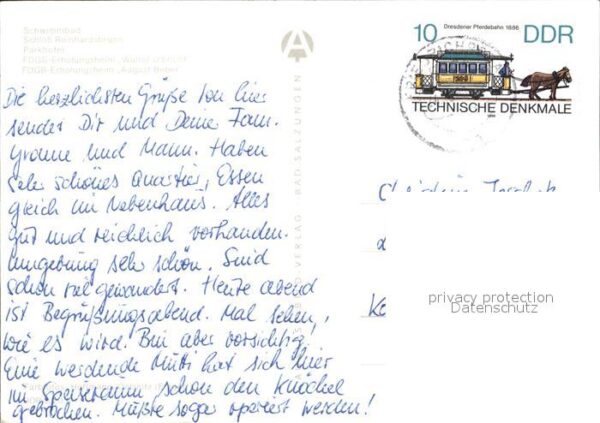 Schwimmbad
Schloß Reinhardsbrunn
Parkhotel
FDGB-Erholungsheim „Walter Ulbricht“
FDGB-Erholungsheim „August Bebel“
Die herzlichsten Grüße von hier
sendet Dir und Deine Fam.
Yvonne und Mann. Haben
sehr schönes Quartier, Essen
gleich im Nebenhaus. Alles
gut und reichlich vorhanden.
Umgebung sehr schön. Sind
schon viel gewandert. Heute abend
ist Begrüßungsabend. Mal sehen,
wie es wird. Bin aber vorsichtig.
Eine werdende Mutti hat sich hier
im Speiseraum schon den Knöchel
gebrochen. Müßte sogar operiert werden!
VERLAG BAD SALZUNGEN
10 Dresdener Pferdebahn 1886 DDR
TECHNISCHE DENKMALE
1986
privacy protection
Datenschutz